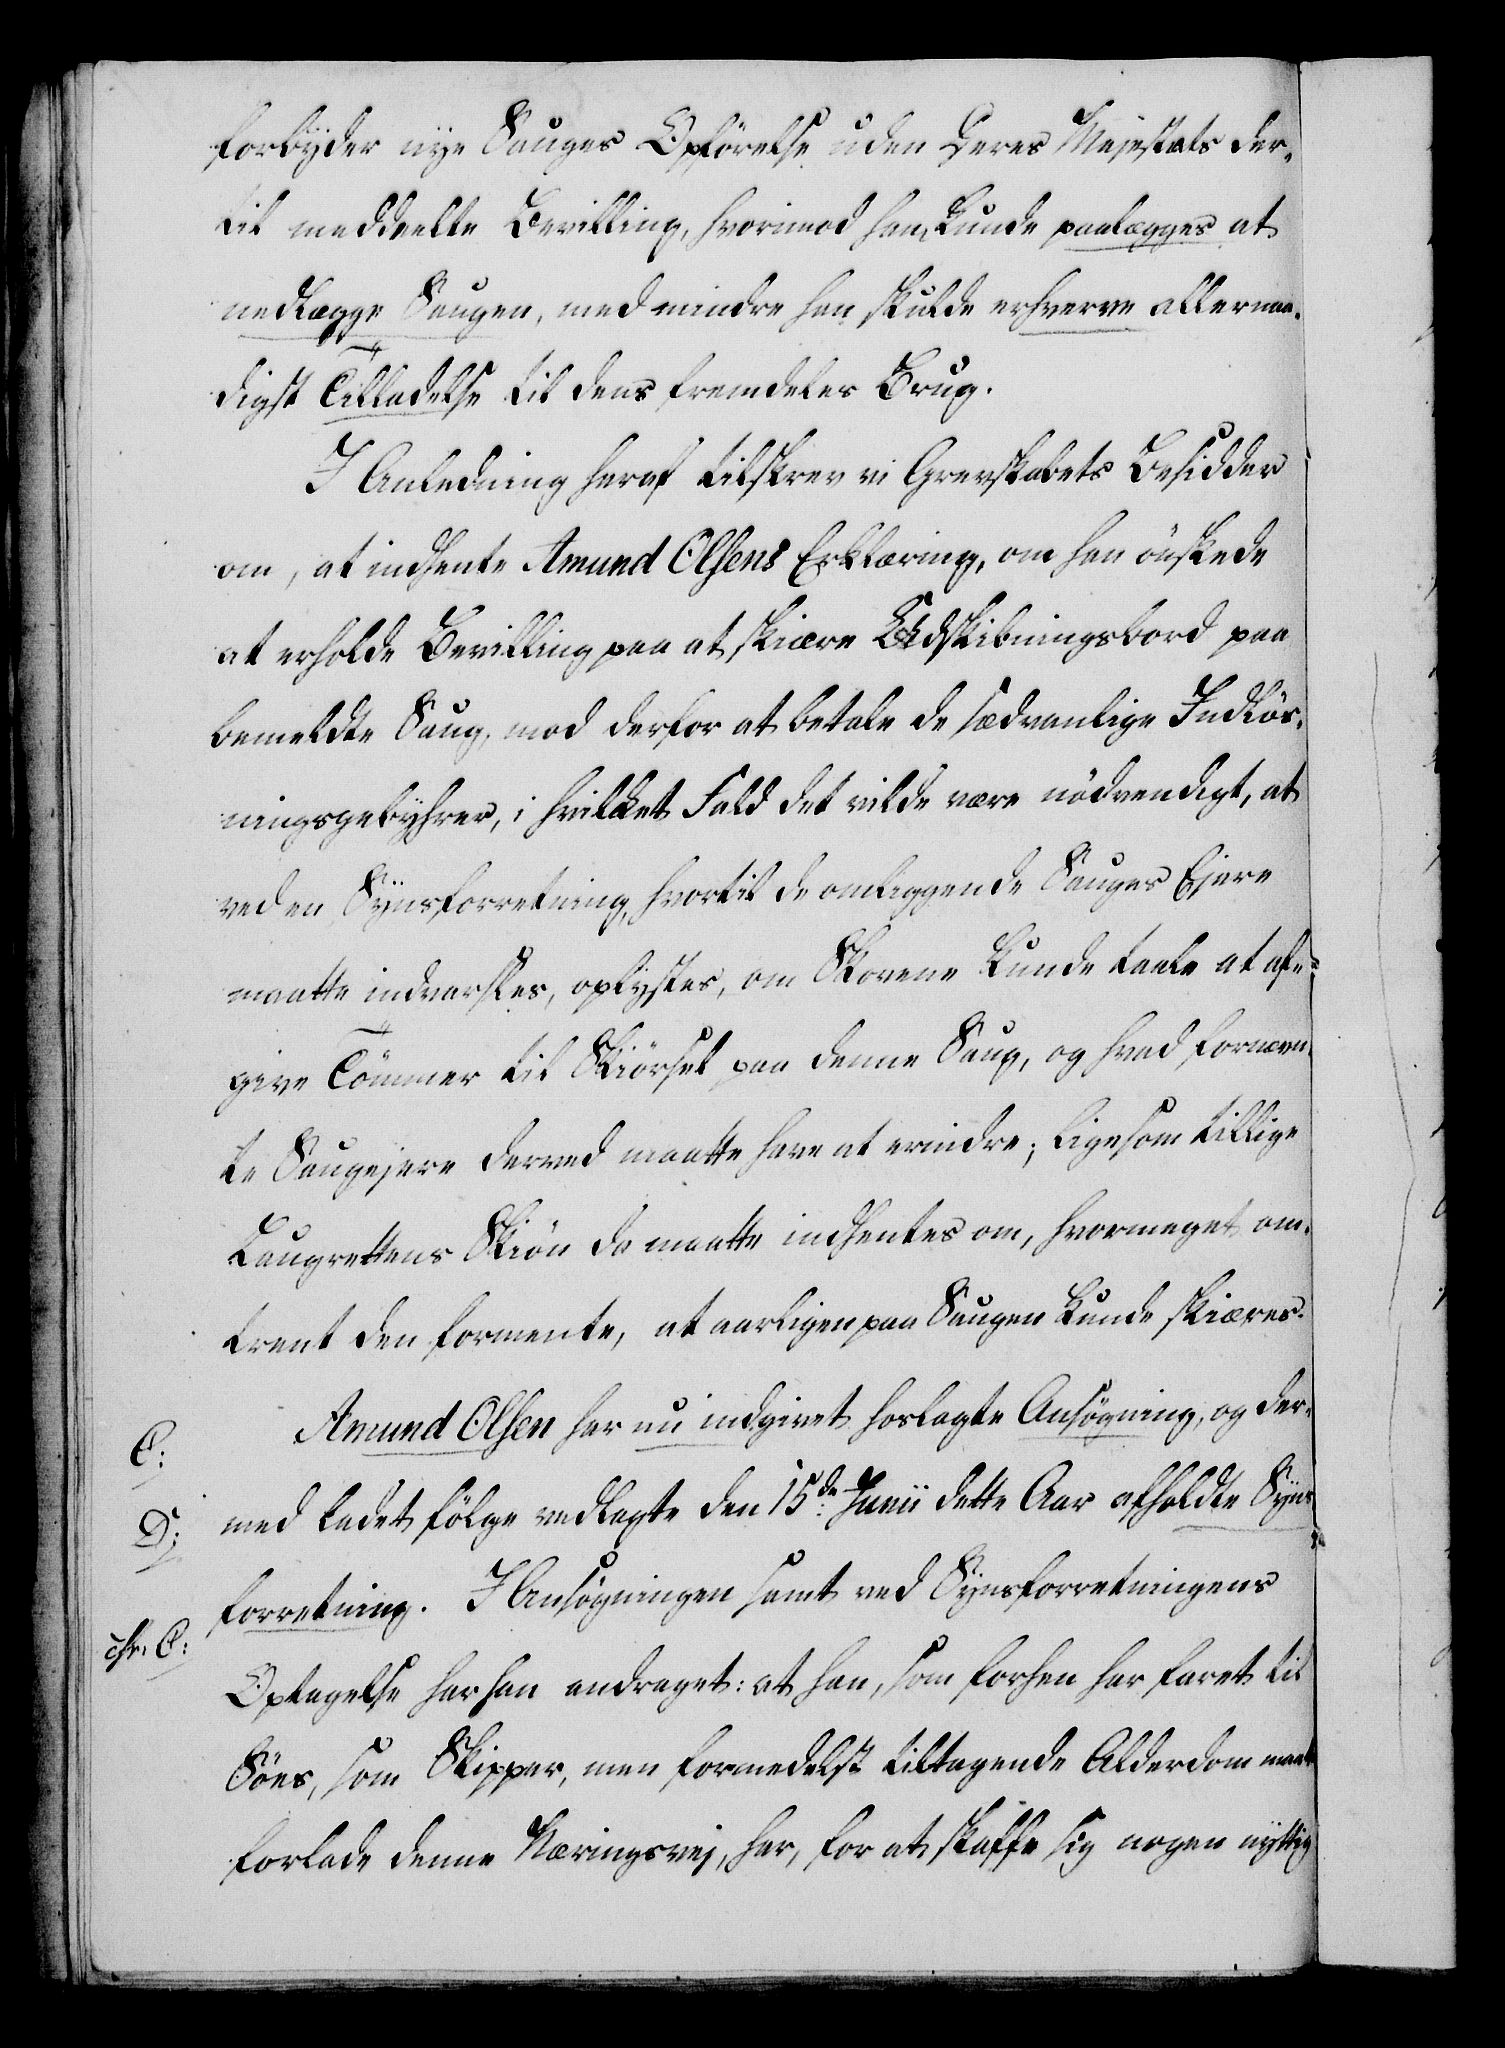 forbyder nye Sauges Opförelse uden Deres Majestæts der-
til meddeelte Bevilling, hvorimod ham kunde paalægges at
nedlægge Saugen, med mindre han skulde erhverve allernaa-
digst Tilladelse til dens fremdeles Brug.
I Anledning heraf tilskrev vi Grevskabets Besidder
om, at indhente Amund Olsens Erklæring, om han önskede
at erholde Bevilling paa at skiære Udskibningsbord paa
bemeldte Saug, mod derfor at betale de sædvanlige Indlös-
ningsgebyhrer, i hvilket Fald det vilde være nödvendigt, at
ved en Synsforretning, hvortil de omliggende Sauges Ejere
maatte indvarsles, oplystes, om Skovene kunde taale at afe-
give Tömmer til Skiörsel paa denne Saug, og hvad fornævn-
te Saugejere derved maatte have at erindre; ligesom tillige
Laugrettens Skiön da maatte indhentes om, hvormeget om-
trent den formente, at aarligen paa Saugen kunde skiæres.
Amund Olsen har nu indgivet hoslagte Ansögning, og der-
C:
med ladet fölge vedlagte den 15de Junii dette Aar afholdte Syns
D:
forretning. I Ansögningen samt ved Synsforretningens
cfr. C:
Optagelse har han andraget: at han, som forhen har faret til
Söes, som Skipper, men formedelst tiltagende Alderdom maatte
forlade denne Næringsvej, har, for at skaffe sig nogen nyttig